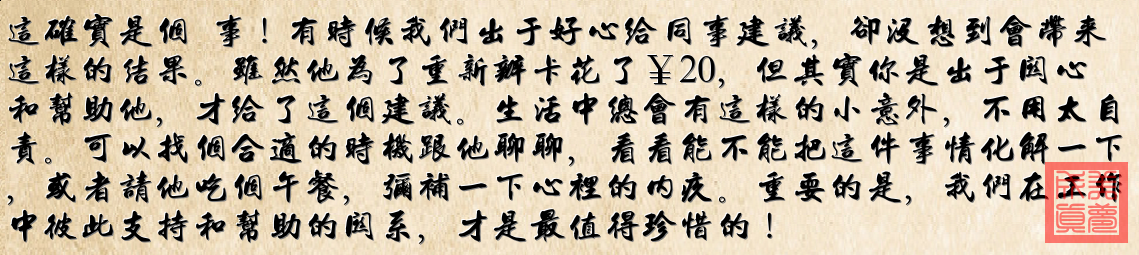 這確實是個 事！有時候我們出于好心給同事建議，卻沒想到會帶来
這樣的结果。雖然他為了重新辦卡花了￥20，但其實你是出于関心
和幫助他，才給了這個建議。生活中總會有這樣的小意外，不用太自
責。可以找個合適的時機跟他聊聊，看看能不能把這件事情化解一下
，或者請他吃個午餐，彌補一下心裡的内疚。重要的是，我們在工作
中彼此支持和幫助的関系，才是最值得珍惜的！
美夢成真